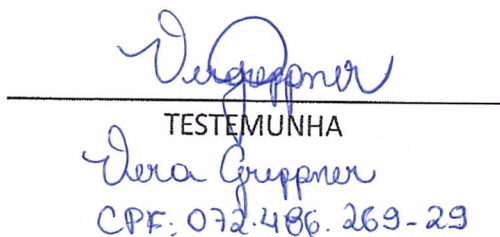 Vergreppner
TESTEMUNHA
Vera Greppner
CPF: 072.486.269-29